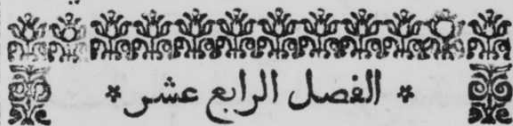 * الفصل الرابع عشر *